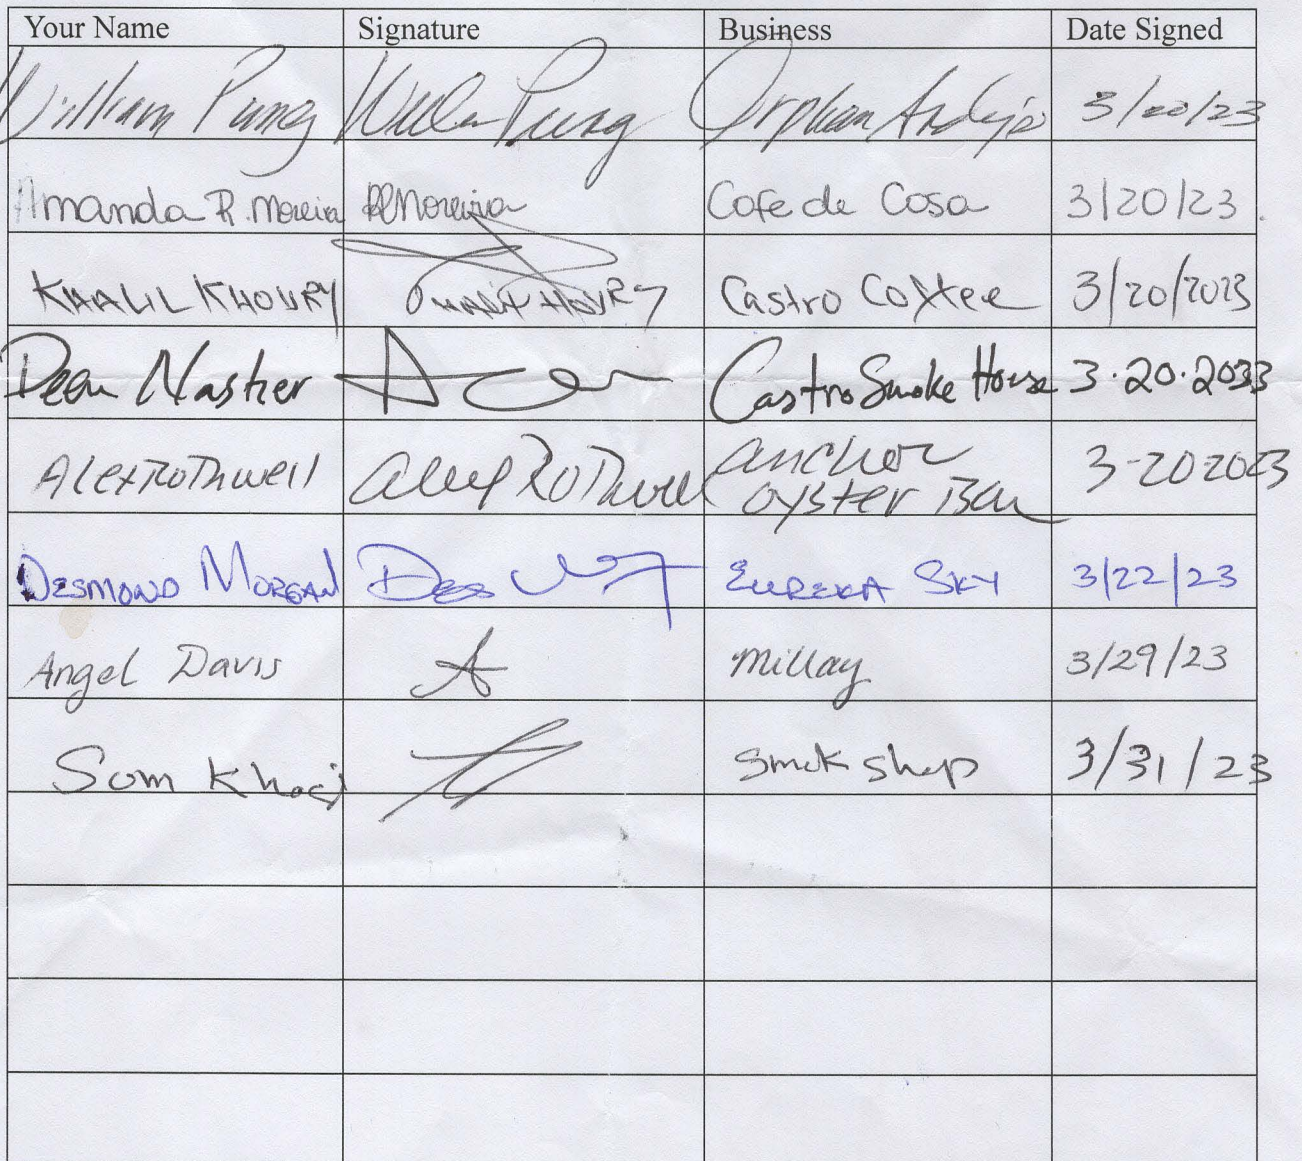 Your Name Signature Business Date Signed
William Pung William Pung Orphan Andy's 3/20/23
Amanda R. Moreira ARMoreira Cafe de Casa 3/20/23.
KHALIL KHOURY KHALIL KHOURY Castro Coffee 3/20/2023
Dean Nasher Castro Smoke House 3.20.2033
Alex Rothwell Alex Rothwell anchor
oyster Bar 3-20 2023
DESMOND MORGAN Des EUREKA SKY 3/22/23
Angel Davis A Millay 3/29/23
Sam smok shop 3/31/23